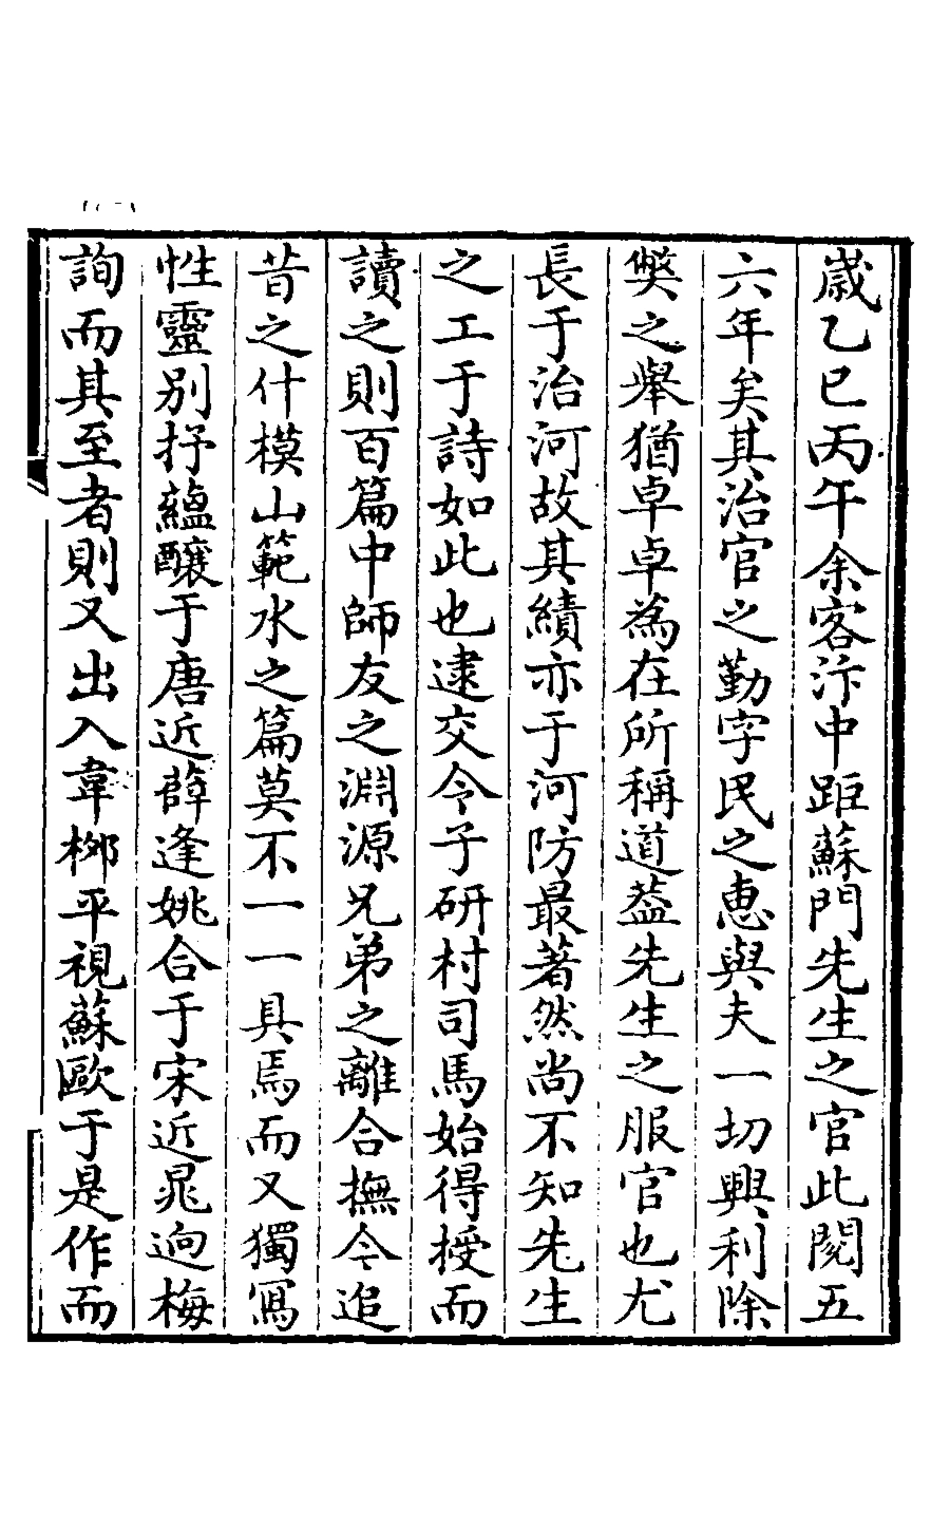 歲乙巳丙午余客汴中距蘇門先生之官此閱五
六年矣其治官之勤字民之惠與夫一切興利除
獘之舉猶卓卓為在所稱道葢先生之服官也尤
長于治河故其績亦于河防最著然尚不知先生
之工于詩如此也逮交令子研村司馬始得授而
讀之則百篇中師友之淵源兄弟之離合撫今追
昔之什模山範水之篇莫不一一具焉而又獨寫
性靈别抒蘊釀于唐近薛逢姚合于宋近晁逈梅
詢而其至者則又出入韋桺平視蘇歐于是作而